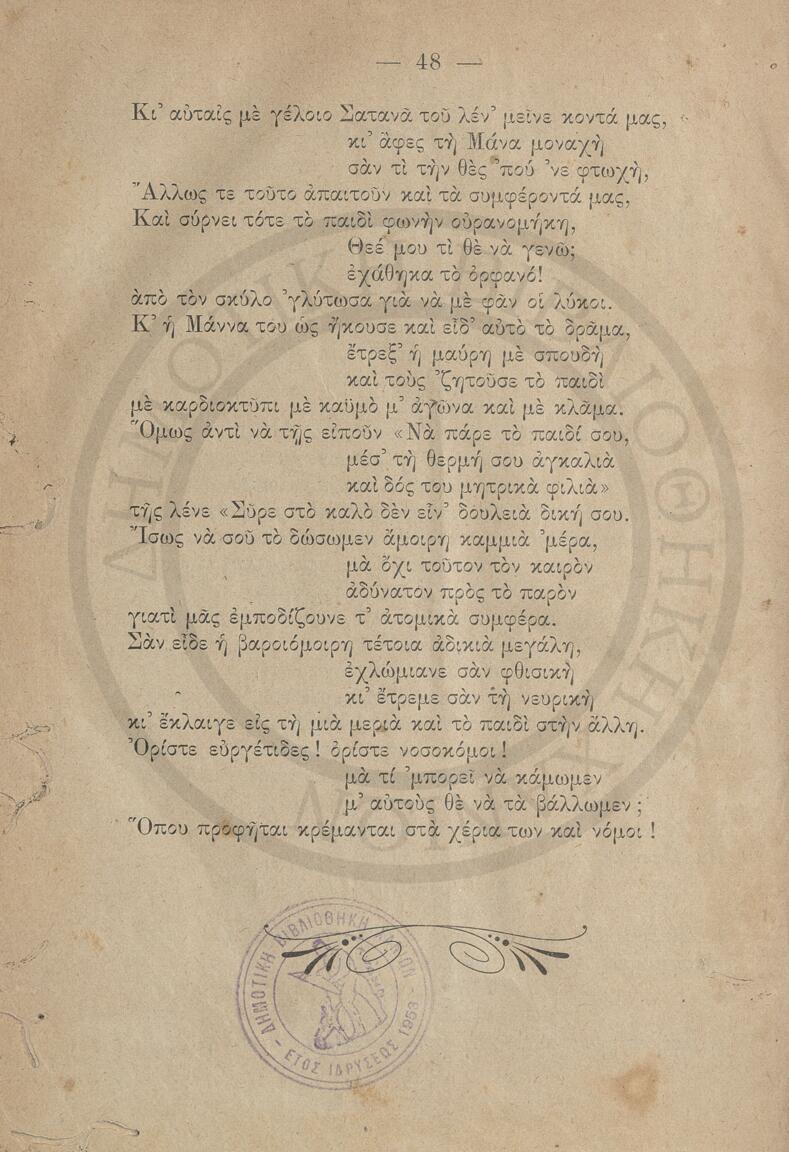 — 48 —
Κι’ αὐταὶς μὲ γέλοιο Σατανᾶ τοῦ λέν’ μεῖνε κοντά μας,
κι’ ἄφες τὴ Μάνα μοναχὴ
σὰν τὶ τὴν θὲς ’ποὺ ’νε φτωχὴ,
Ἄλλως τε τοῦτο ἀπαιτοῦν καὶ τὰ συμφέροντά μας,
Καὶ σύρνει τότε τὸ παιδὶ φωνὴν οὐρανομήκη,
Θεέ μου τὶ θὲ νὰ γενῶ;
ἐχάθηκα τὸ ὀρφανό!
ἀπὸ τὸν σκύλο ’γλύτωσα γιὰ νὰ μὲ φᾶν οἱ λύκοι.
Κ’ ἡ Μάννα του ὡς ἤκουσε καὶ εἶδ’ αὐτὸ τὸ δρᾶμα,
ἔτρεξ’ ἡ μαύρη μὲ σπουδὴ
καὶ τοὺς ’ζητοῦσε τὸ παιδὶ
μὲ καρδιοκτῦπι μὲ καϋμὸ μ’ ἀγῶνα καὶ μὲ κλᾶμα.
Ὅμως ἀντὶ νὰ τῆς εἰποῦν «Νὰ πάρε τὸ παιδί σου,
μέσ’ τὴ θερμή σου ἀγκαλιὰ
καὶ δός του μητρικὰ φιλιὰ»
τῆς λένε «Σῦρε στὸ καλὸ δὲν εἶν’ δουλειὰ δική σου.
Ἴσως νὰ σοῦ τὸ δώσωμεν ἄμοιρη καμμιὰ ’μέρα,
μὰ ὄχι τοῦτον τὸν καιρὸν
ἀδύνατον πρὸς τὸ παρὸν
γιατὶ μᾶς ἐμποδίζουνε τ’ ἀτομικὰ συμφέρα.
Σὰν εἶδε ἡ βαροιόμοιρη τέτοια ἀδικιὰ μεγάλη,
ἐχλώμιανε σὰν φθισικὴ
κι’ ἔτρεμε σὰν τὴ νευρικὴ
κι’ ἔκλαιγε εἰς τὴ μιὰ μεριὰ καὶ τὸ παιδὶ στὴν ἄλλη.
Ὁρίστε εὐργέτιδες! ὁρίστε νοσοκόμοι!
μὰ τί ’μπορεῖ νὰ κάμωμεν
μ’ αὐτοὺς θὲ νὰ τὰ βάλλωμεν;
Ὅπου προφῆται κρέμανται στὰ χέρια των καὶ νόμοι!
ΔΗΜΟΤΙΚΗ ΒΙΒΛΙΟΘΗΚΗ
ΕΤΟΣ ΙΔΡΥΣΕΩΣ 1953